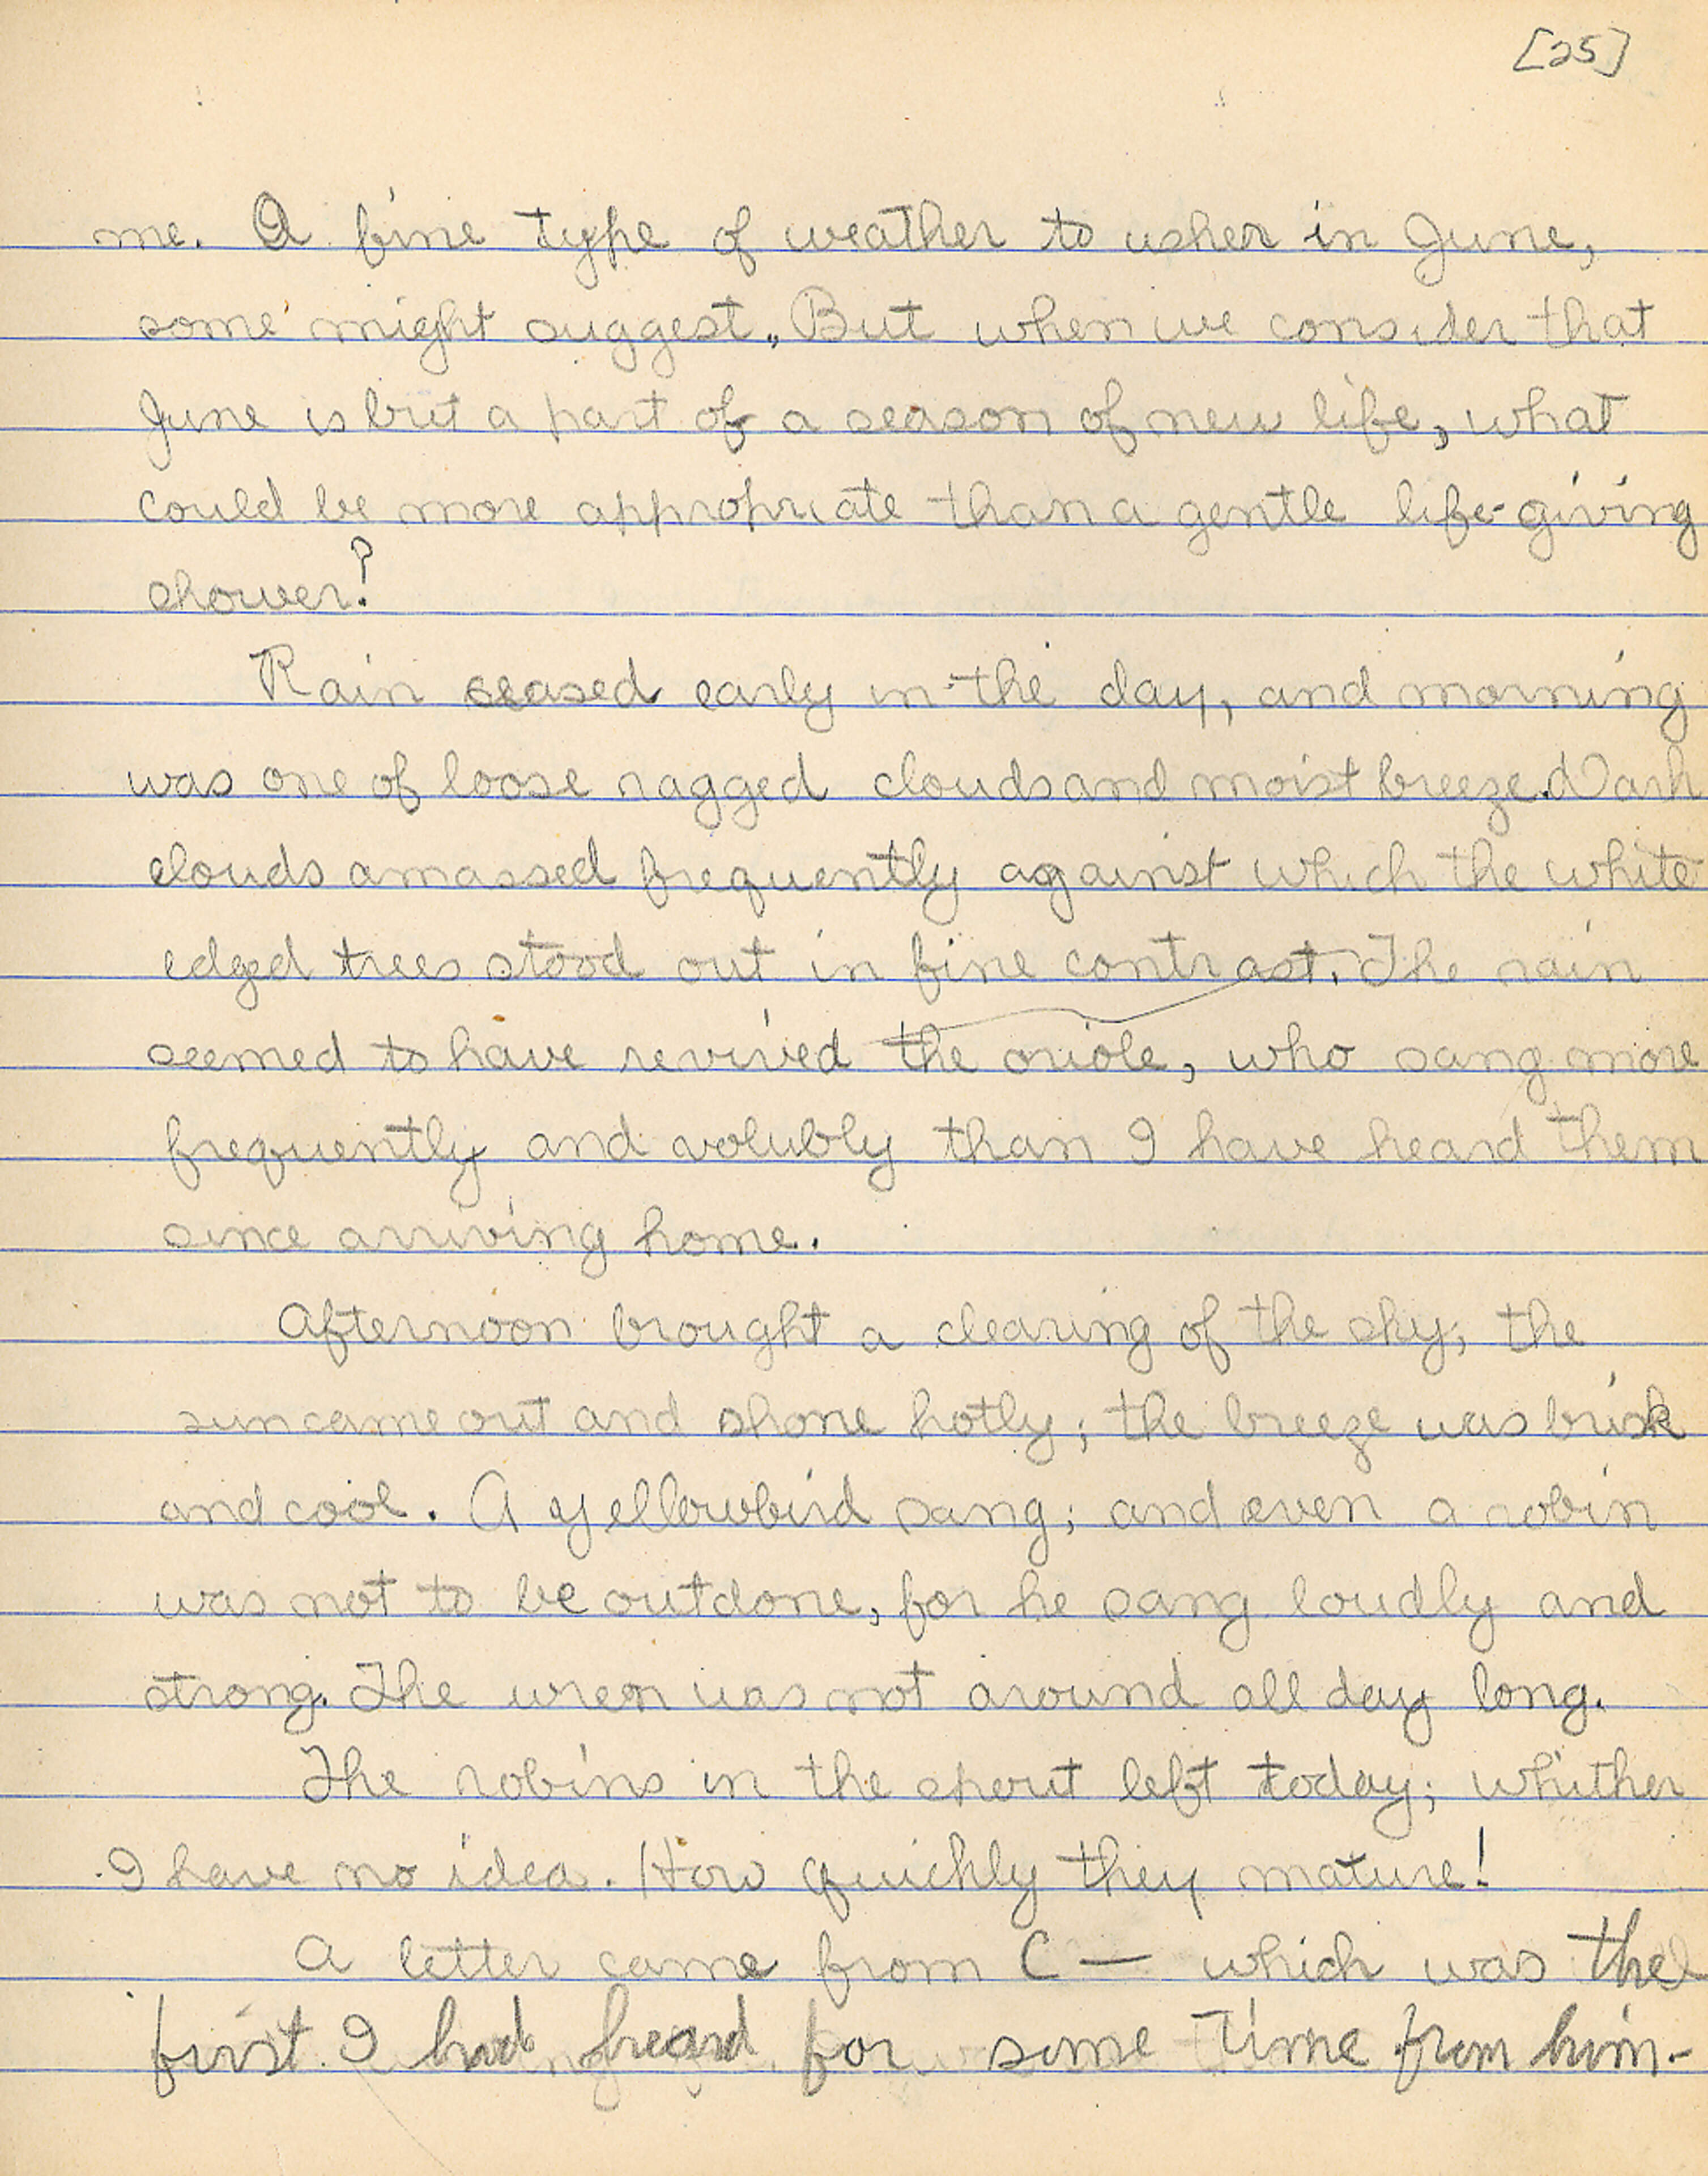 [25]
me. A fine type of weather to usher in June,
some might suggest. But when we consider that
June is but a part of a season of new life, what
could be more appropriate than a gentle life-giving
shower?
Rain ceased early in the day, and morning
was one of loose ragged clouds and moist breeze. Dark
clouds amassed frequently against which the white
edged trees stood out in fine contrast. The rain
seemed to have revived the oriole, who sang more
frequently and volubly than I have heard them
since arriving home.
Afternoon brought a clearing of the sky; the
sun came out and shone hotly; the breeze was brisk
and cool. A yellowbird sang; and even a robin
was not to be outdone, for he sang loudly and
strong. The wren was not around all day long.
The robins in the spout left today; whither
I have no idea. How quickly they mature!
A letter came from C — which was the
first I had heard for some time from him-